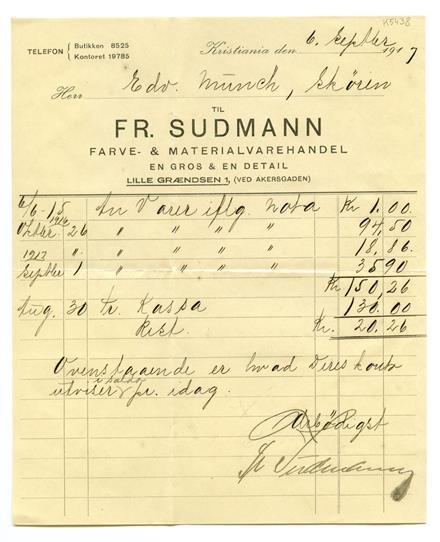 K5438
TELEFON { Butikken 8525
Kontoret 19785
Kristiania den 6. Septbr 1917
Herr Edv. Munch, Skøien
TIL
FR. SUDMANN
FARVE- & MATERIALVAREHANDEL
EN GROS & EN DETAIL
LILLE GRÆNDSEN 1, (VED AKERSGADEN)
6/6-15 An Varer iflg. nota Kr 1.00.
1916
26 " " " " 94,50
1917 " " " " " 18,86.
Septbr 1 " " " " 35,90
Kr 150,26
Aug. 30 Pr. Kassa 130.00
Rest. Kr. 20,26
Ovenstaaende er hvad Deres konto
i saldo
utviser pr. idag.
Ærbødigst
Fr Sudmann